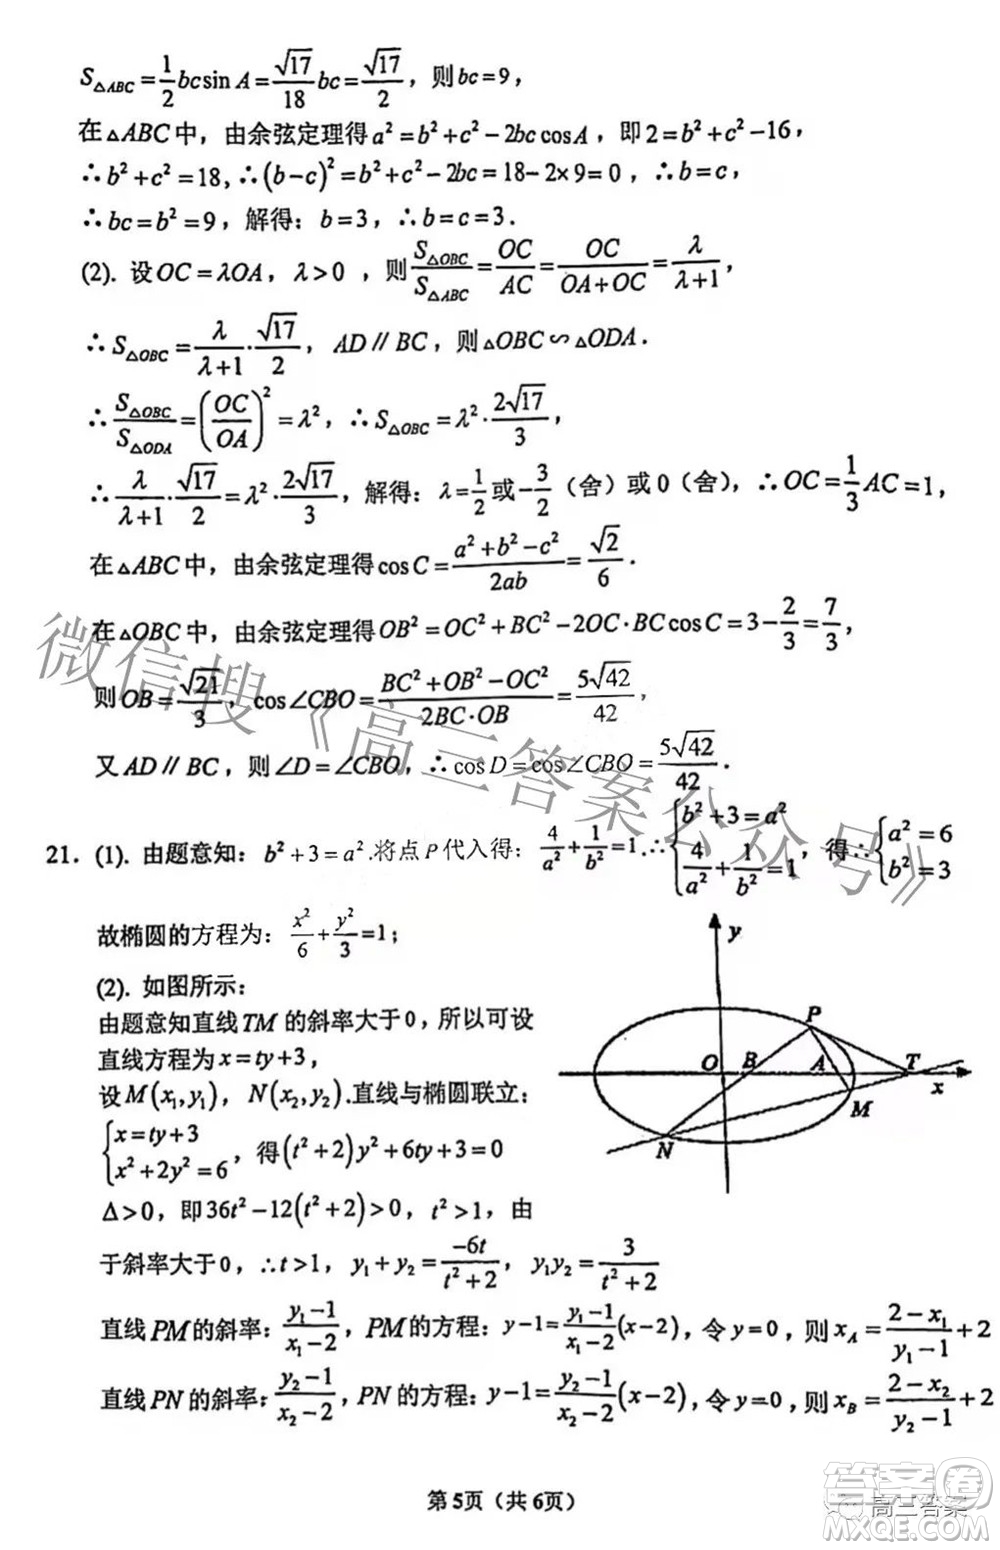 S△ABC=1/2 bc sin A=√17/18 bc=√17/2，则bc=9，
在△ABC中，由余弦定理得a²=b²+c²-2bc cosA，即2=b²+c²-16，
∴b²+c²=18,∴(b-c)²=b²+c²-2bc=18-2×9=0，∴b=c，
∴bc=b²=9，解得：b=3，∴b=c=3．
(2). 设OC=λOA，λ>0 ，则S△OBC/S△ABC=OC/AC=OC/(OA+OC)=λ/(λ+1)，
∴S△OBC=λ/(λ+1)·√17/2，AD∥BC，则△OBC∽△ODA．
∴S△OBC/S△ODA=(OC/OA)²=λ²，∴S△OBC=λ²·2√17/3，
∴λ/(λ+1)·√17/2=λ²·2√17/3，解得：λ=1/2或-3/2（舍）或0（舍），∴OC=1/3 AC=1，
在△ABC中，由余弦定理得cosC=(a²+b²-c²)/2ab=√2/6．
在△OBC中，由余弦定理得OB²=OC²+BC²-2OC·BC cosC=3-2/3=7/3，
则OB=√21/3，cos∠CBO=(BC²+OB²-OC²)/(2BC·OB)=5√42/42，
又AD∥BC，则∠D=∠CBO，∴cosD=cos∠CBO=5√42/42．
微信搜《高三答案公众号》
21．(1). 由题意知：b²+3=a².将点P代入得：4/a²+1/b²=1.∴{b²+3=a² 4/a²+1/b²=1，得∴{a²=6 b²=3
故椭圆的方程为：x²/6+y²/3=1；
(2). 如图所示：
由题意知直线TM的斜率大于0，所以可设
直线方程为x=ty+3，
设M(x₁,y₁)，N(x₂,y₂).直线与椭圆联立：
{x=ty+3 x²+2y²=6，得(t²+2)y²+6ty+3=0
Δ>0，即36t²-12(t²+2)>0，t²>1，由
于斜率大于0，∴t>1，y₁+y₂=-6t/(t²+2)，y₁y₂=3/(t²+2)
y
P
O
B
A
T
x
M
N
直线PM的斜率：(y₁-1)/(x₁-2)，PM的方程：y-1=(y₁-1)/(x₁-2)(x-2)，令y=0，则x_A=(2-x₁)/(y₁-1)+2
直线PN的斜率：(y₂-1)/(x₂-2)，PN的方程：y-1=(y₂-1)/(x₂-2)(x-2)，令y=0，则x_B=(2-x₂)/(y₂-1)+2
第5页（共6页）
高三答案
答案圈
MXQE.COM